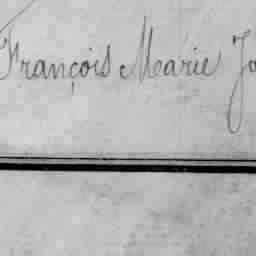 François Marie Jo